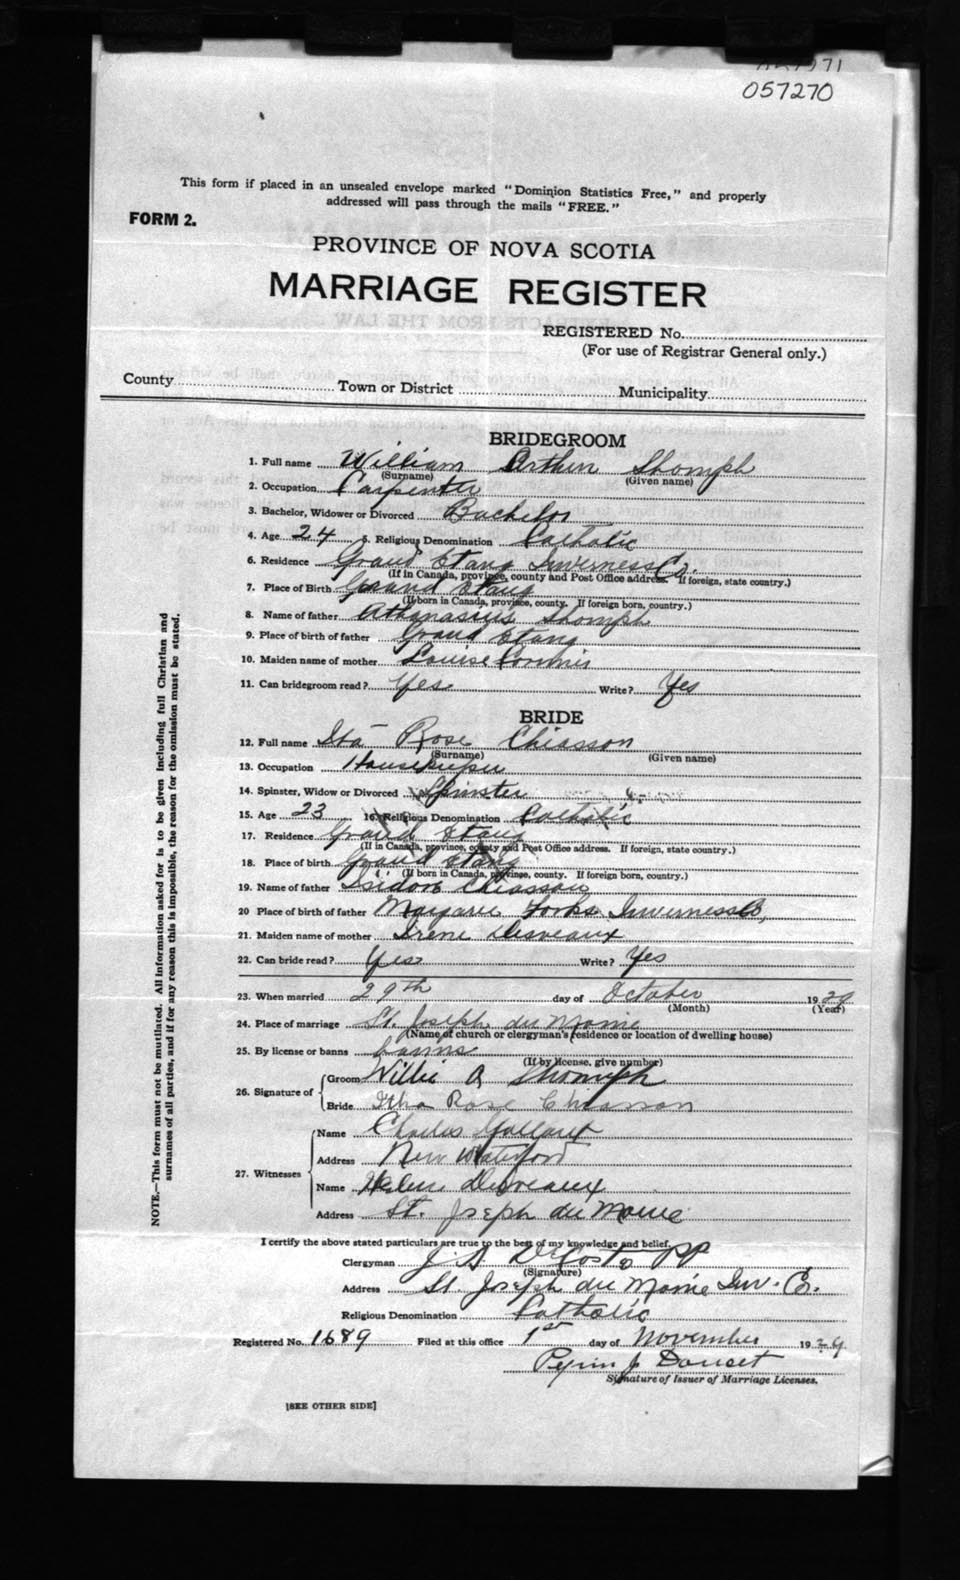 057270
This form if placed in an unsealed envelope marked "Dominion Statistics Free," and properly
addressed will pass through the mails "FREE."
FORM 2.
PROVINCE OF NOVA SCOTIA
MARRIAGE REGISTER
REGISTERED No.
(For use of Registrar General only.)
County Town or District Municipality
BRIDEGROOM
1. Full name William Arthur Shomph
(Surname) (Given name)
2. Occupation Carpenter
3. Bachelor, Widower or Divorced Bachelor
4. Age 24 5. Religious Denomination Catholic
6. Residence Grand Etang Inverness Co.
(If in Canada, province, county and Post Office address. If foreign, state country.)
7. Place of Birth Grand Etang
(If born in Canada, province, county. If foreign born, country.)
8. Name of father Athanasius Shomph
9. Place of birth of father Grand Etang
10. Maiden name of mother Louise
11. Can bridegroom read? Yes Write? Yes
BRIDE
12. Full name Ita Rose Chiasson
(Surname) (Given name)
13. Occupation Housekeeper
14. Spinster, Widow or Divorced Spinster
15. Age 23 16. Religious Denomination Catholic
17. Residence Grand Etang
(If in Canada, province, county and Post Office address. If foreign, state country.)
18. Place of birth Grand Etang
(If born in Canada, province, county. If foreign born, country.)
19. Name of father Isidore Chiasson
20 Place of birth of father Margaree Forks Inverness Co,
21. Maiden name of mother Irene Desveaux
22. Can bride read? Yes Write? Yes
23. When married 29th day of October 19
(Month) (Year)
24. Place of marriage St. Joseph du Moine
(Name of church or clergyman's residence or location of dwelling house)
25. By license or banns banns
(If by license, give number)
26. Signature of Groom Willie A Shomph
Bride Itha Rose Chiasson
27. Witnesses Name Charles Gallant
Address New Waterford
Name Helene Desveaux
Address St. Joseph du Moine
I certify the above stated particulars are true to the best of my knowledge and belief.
Clergyman J. D. DeCoste PP
(Signature)
Address St. Joseph du Moine Inv. C.
Religious Denomination Catholic
Registered No. 1689 Filed at this office 1st day of November 19
J Doucet
Signature of Issuer of Marriage Licenses.
[SEE OTHER SIDE]
NOTE.—This form must not be mutilated. All information asked for is to be given including full Christian and
surnames of all parties, and if for any reason this is impossible, the reason for the omission must be stated.